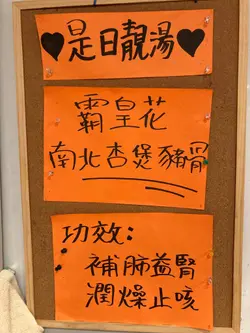 ♥是日靚湯♥
霸皇花
南北杏煲豬𦟌
功效：
補肺益腎
潤燥止咳